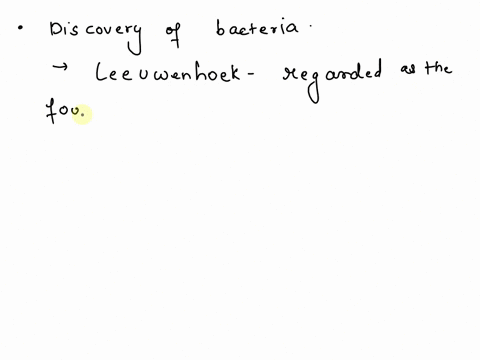 • Discovery of bacteria.
→ Leeuwenhoek - regarded as the
fou